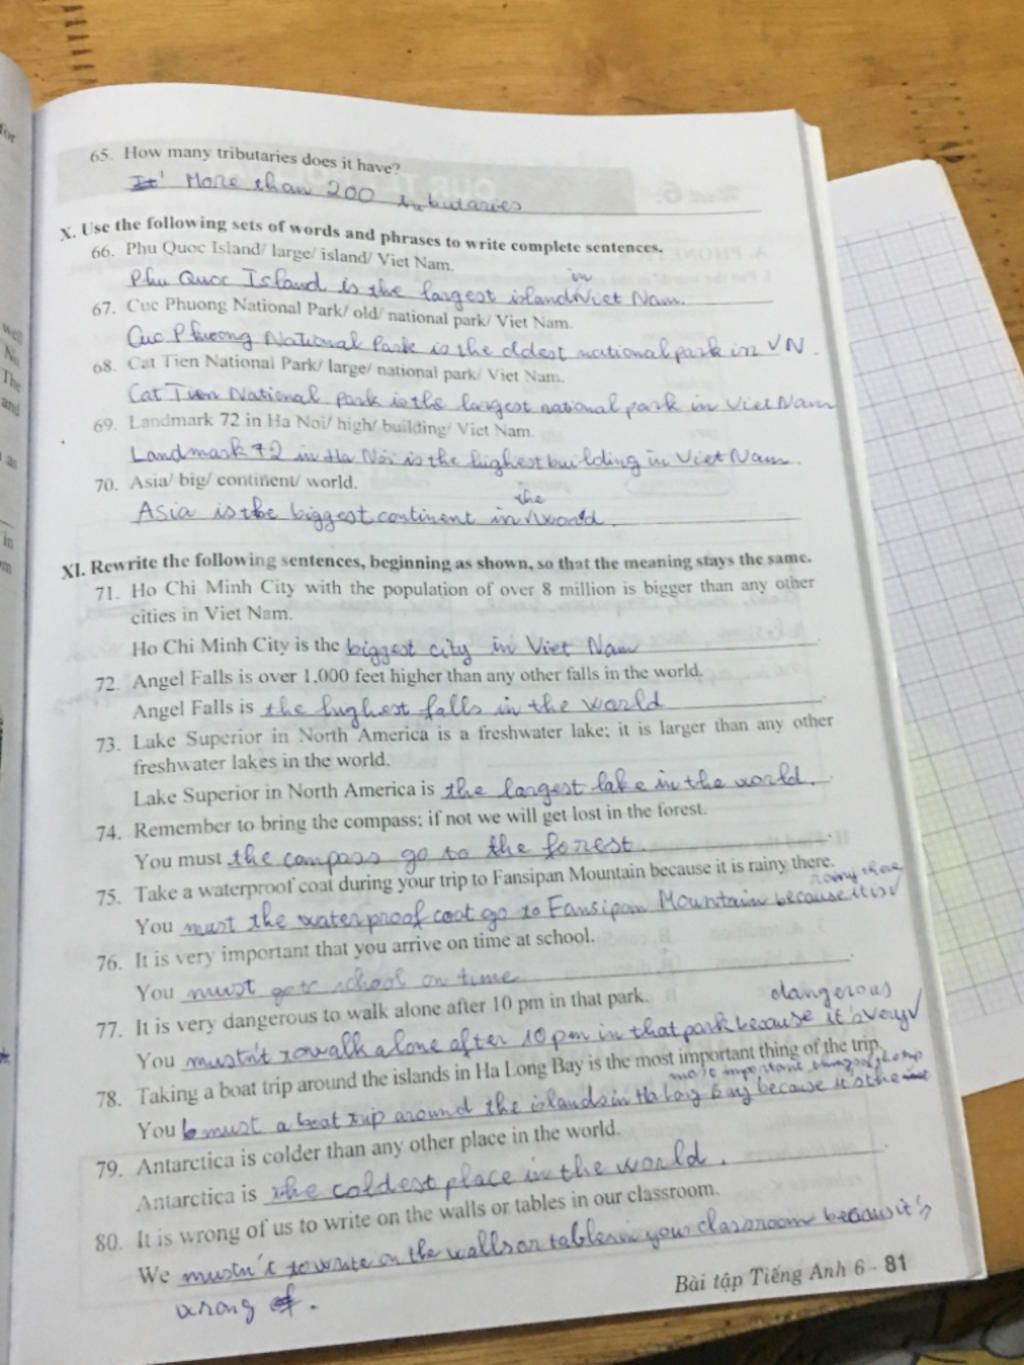 65. How many tributaries does it have?
It' More than 200 tributaries
X. Use the following sets of words and phrases to write complete sentences.
66. Phu Quoc Island/ large/ island/ Viet Nam.
in
Phu Quoc Island is the largest island Viet Nam.
67. Cuc Phuong National Park/ old/ national park/ Viet Nam.
Cuc Phuong National Park is the oldest national park in VN.
68. Cat Tien National Park/ large/ national park/ Viet Nam.
Cat Tien National Park is the largest national park in Viet Nam
69. Landmark 72 in Ha Noi/ high/ building/ Viet Nam.
Landmark 72 in Ha Noi is the highest building in Viet Nam.
70. Asia/ big/ continent/ world.
the
Asia is the biggest continent in world.
XI. Rewrite the following sentences, beginning as shown, so that the meaning stays the same.
71. Ho Chi Minh City with the population of over 8 million is bigger than any other
cities in Viet Nam.
Ho Chi Minh City is the biggest city in Viet Nam
72. Angel Falls is over 1,000 feet higher than any other falls in the world.
Angel Falls is the highest falls in the world
73. Lake Superior in North America is a freshwater lake; it is larger than any other
freshwater lakes in the world.
Lake Superior in North America is the largest lake in the world.
74. Remember to bring the compass; if not we will get lost in the forest.
You must the compass go to the forest
75. Take a waterproof coat during your trip to Fansipan Mountain because it is rainy there.
rainy there
You must the waterproof coat go to Fansipan Mountain because it is
76. It is very important that you arrive on time at school.
You must go to school on time
77. It is very dangerous to walk alone after 10 pm in that park.
dangerous
You mustn't to walk alone after 10 pm in that park because it's very
78. Taking a boat trip around the islands in Ha Long Bay is the most important thing of the trip.
most important thing of the trip
You must a boat trip around the islands in Ha Long Bay because it's the
79. Antarctica is colder than any other place in the world.
Antarctica is the coldest place in the world.
80. It is wrong of us to write on the walls or tables in our classroom.
We mustn't to write on the walls or tables in your classroom because it's
wrong of.
Bài tập Tiếng Anh 6 - 81